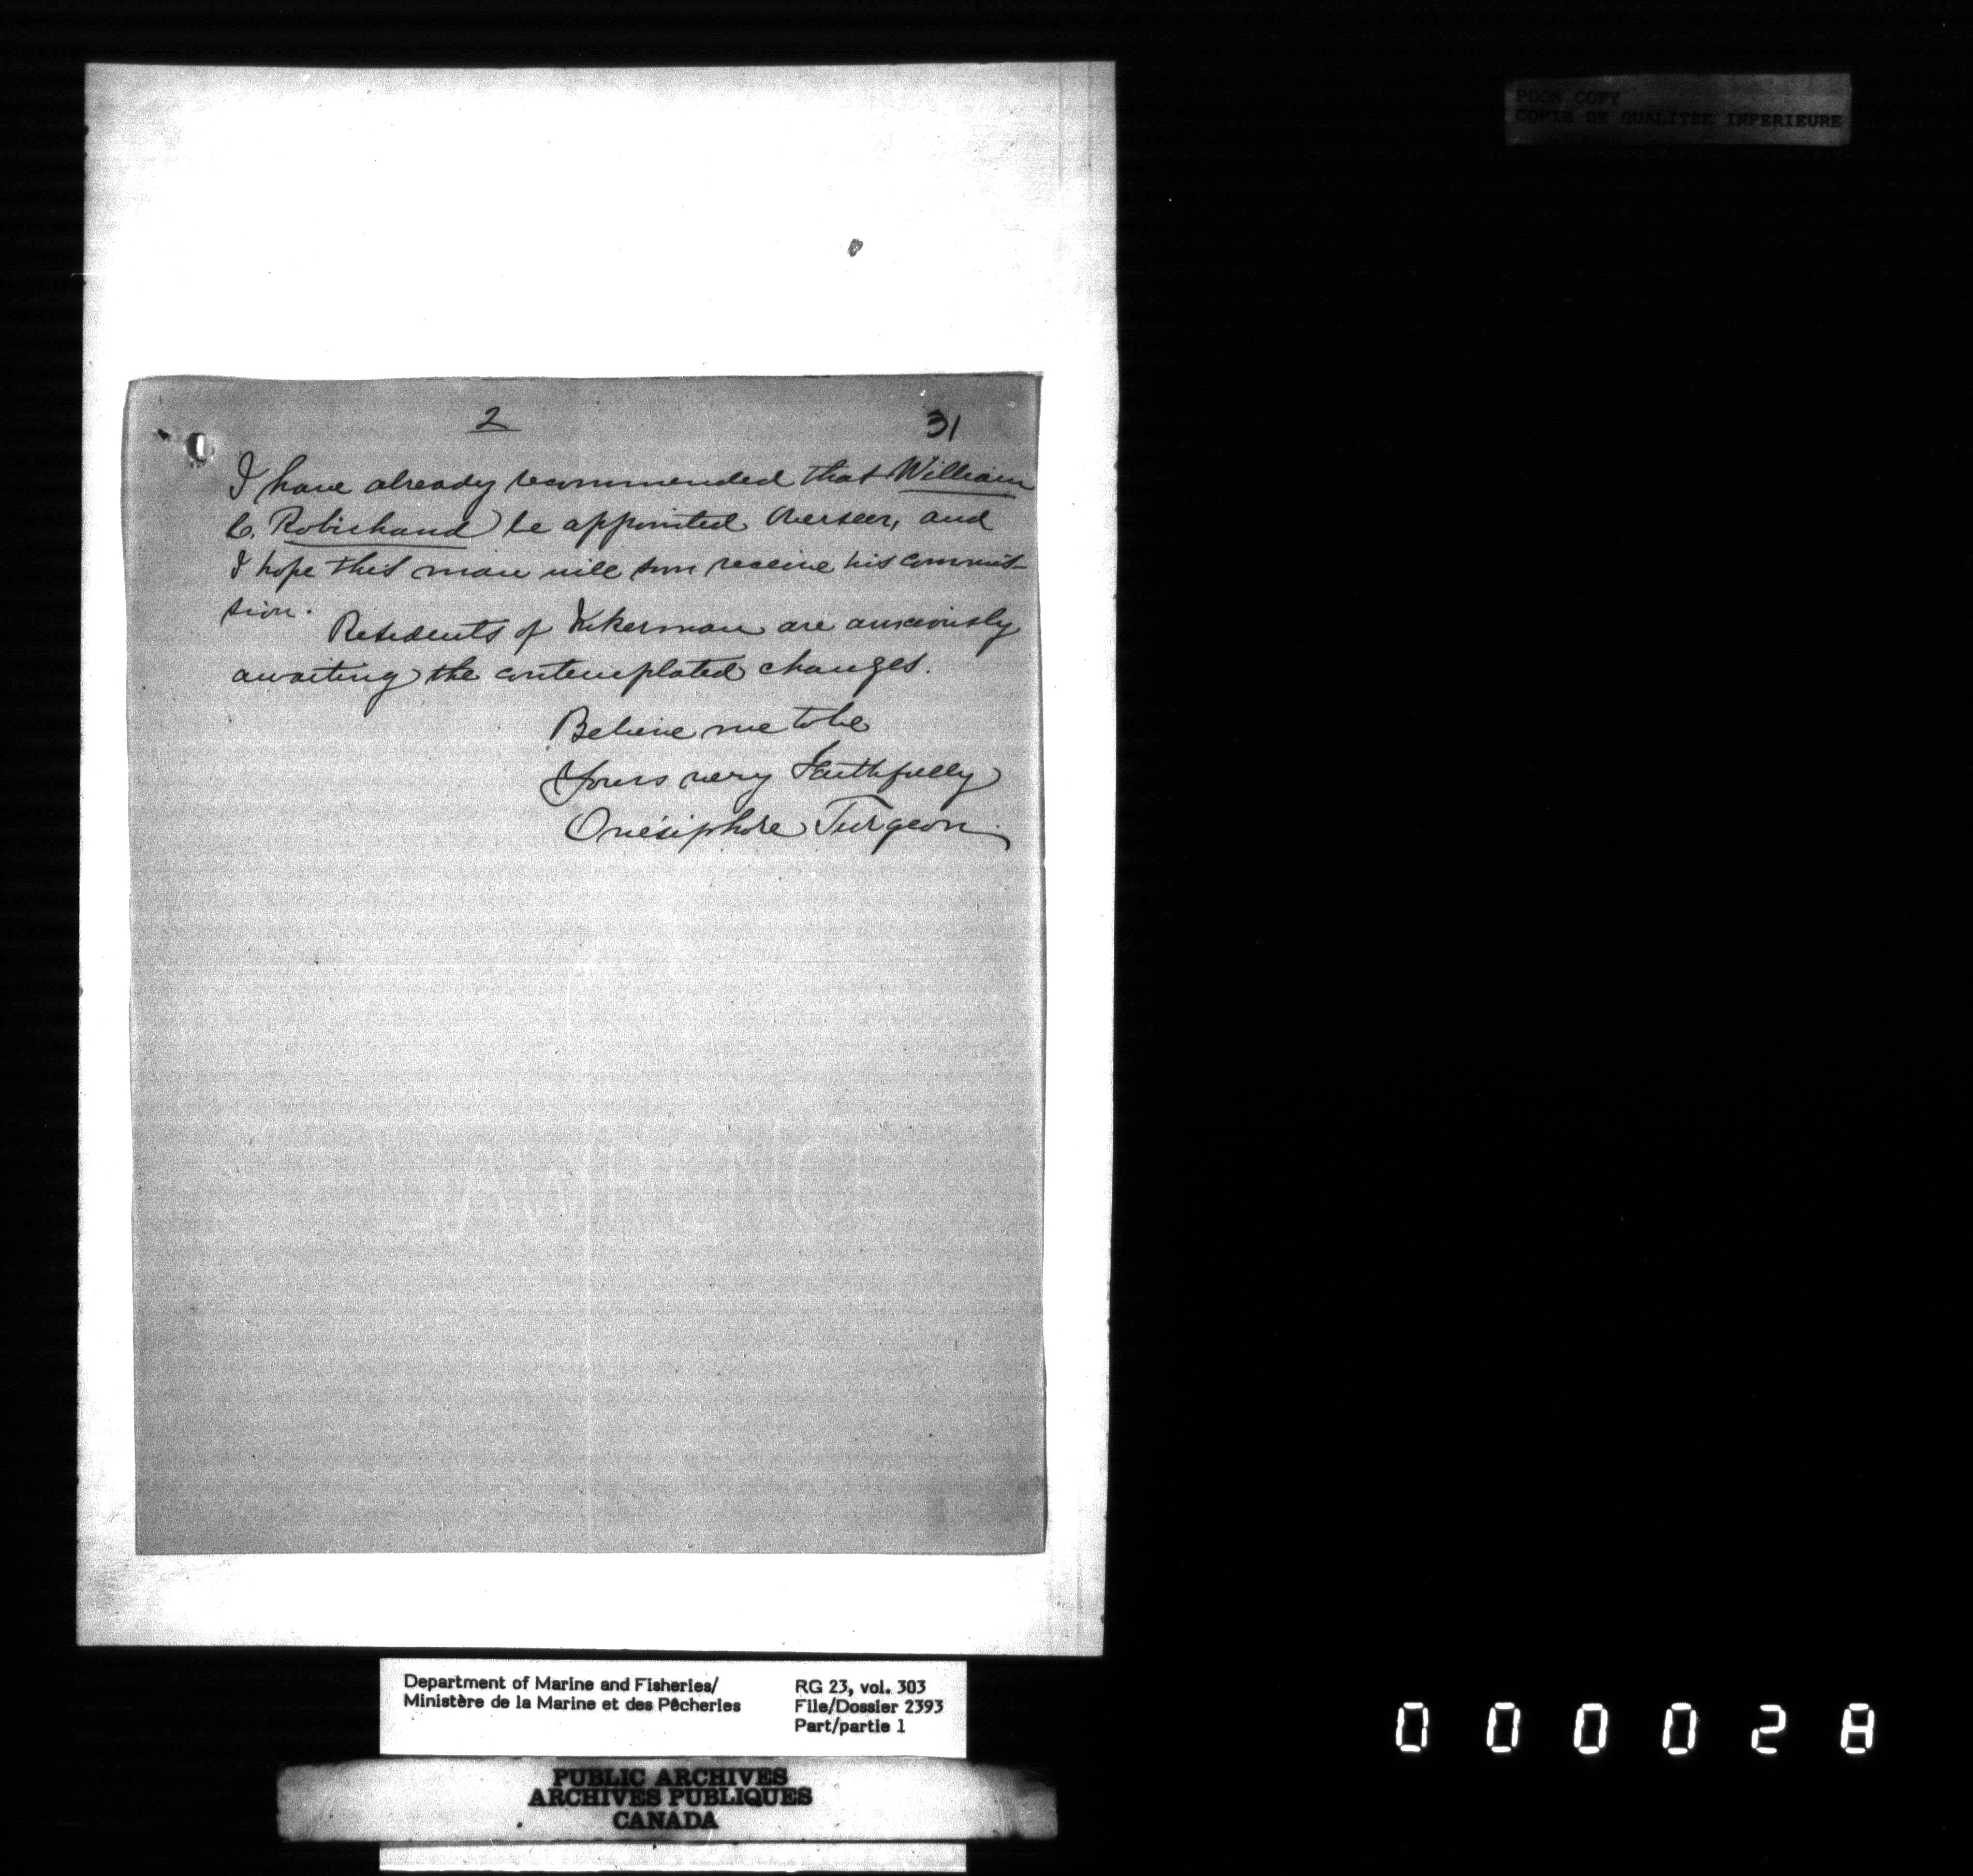 POOR COPY
COPIE DE QUALITEE INFERIEURE
2
31
I have already recommended that William
C. Robichaud be appointed Overseer, and
I hope this man will soon receive his commis-
sion.
Residents of Inkerman are anxiously
awaiting the contemplated changes.
Believe me to be
Yours very Faithfully
Onésiphore Turgeon
ST LAWRENCE
Department of Marine and Fisheries/
Ministère de la Marine et des Pêcheries
RG 23, vol. 303
File/Dossier 2393
Part/partie 1
PUBLIC ARCHIVES
ARCHIVES PUBLIQUES
CANADA
000028